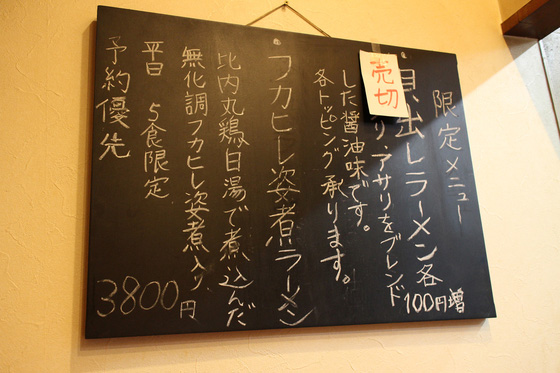 限定メニュー
貝出しラーメン各
100円増
り、アサリをブレンド
した醤油味です。
各トッピング承ります。
売切
フカヒレ姿煮ラーメン
比内丸鶏白湯で煮込んだ
無化調フカヒレ姿煮入り
平日 5食限定
予約優先
3800円